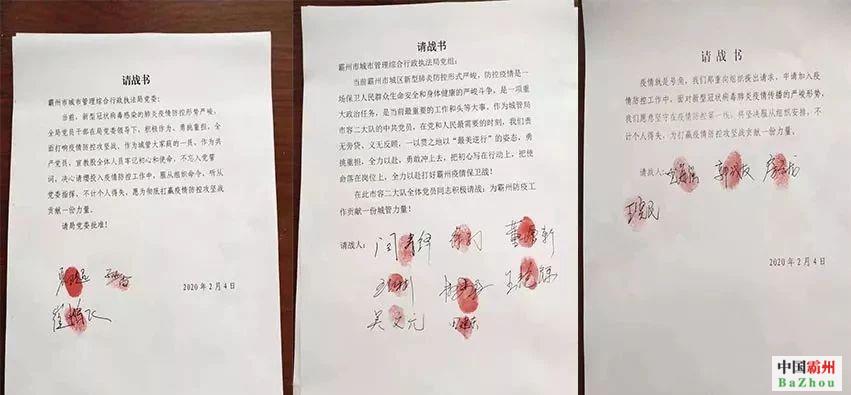 请战书
霸州市城市管理综合行政执法局党委：
当前，新型冠状病毒感染的肺炎疫情防控形势严峻，
全局党员干部在局党委领导下，积极作为、勇挑重担，全
面打响疫情防控攻坚战。作为城管大家庭的一员，作为共
产党员，宣教股全体人员牢记初心和使命，不忘入党誓
词，决心请缨投入疫情防控工作中，服从组织命令，听从
党委指挥，不计个人得失，愿为彻底打赢疫情防控攻坚战
贡献一份力量。
请局党委批准！
2020年2月4日
请战书
霸州市城市管理综合行政执法局党组：
当前霸州市城区新型肺炎防控形式严峻，防控疫情是一
场保卫人民群众生命安全和身体健康的严峻斗争，是一项重
大政治任务，是当前最重要的工作和头等大事，作为城管局
市容二大队的中共党员，在党和人民最需要的时刻，我们责
无旁贷、义无反顾，一以贯之地以“最美逆行”的姿态，勇
挑重担，全力以赴，勇敢冲上去，把初心写在行动上，把使
命落在岗位上，全力以赴打好霸州疫情保卫战！
在此市容二大队全体党员同志积极请战：为霸州防疫工
作贡献一份城管力量！
请战人：
吴文元
2020年2月4日
请战书
疫情就是号角，我们郑重向组织提出请求，申请加入疫
情防控工作中，面对新型冠状病毒肺炎疫情传播的严峻形势，
我们愿意坚守在疫情防控第一线，将坚决服从组织安排，不
计个人得失，为打赢疫情防控攻坚战贡献一份力量！
请战人：
2020年2月4日
中国霸州
BaZhou